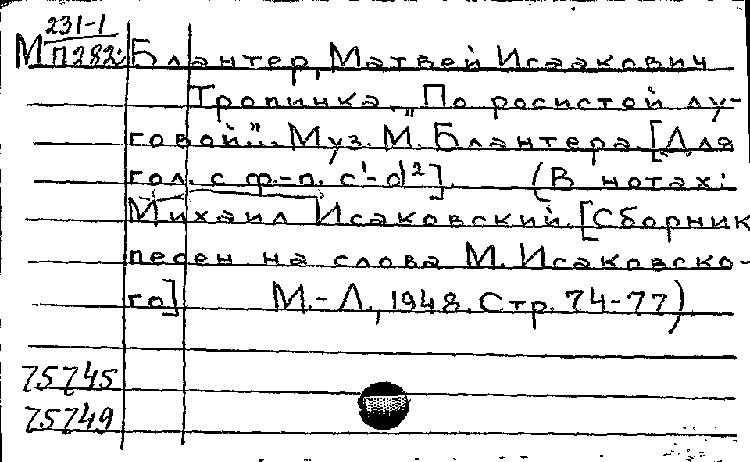 231-1
М П282: Блантер, Матвей Исаакович
Тропинка. „По росистой лу-
говой"... Муз. М. Блантера. [Для
гол. с ф.-п. c¹-d²]. (В нотах:
Михаил Исаковский. [Сборник
песен на слова М. Исаковско-
го] М.-Л., 1948. Стр. 74-77).
75745
75749